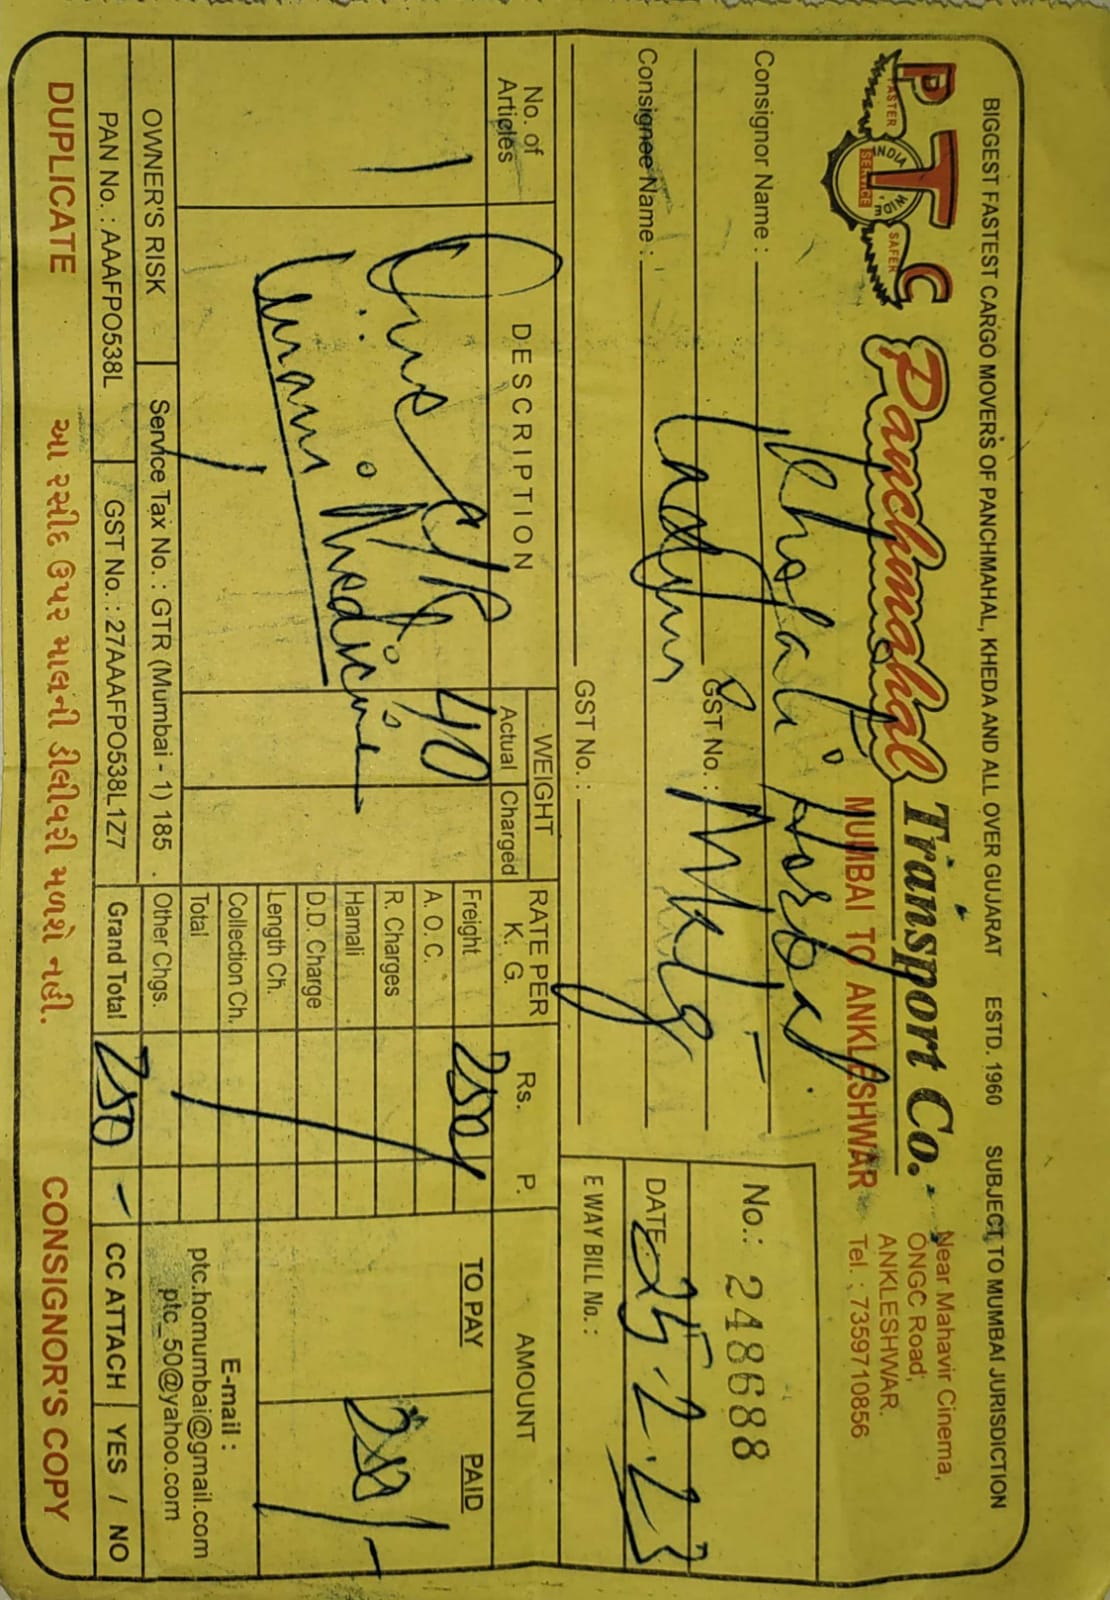 BIGGEST FASTEST CARGO MOVERS OF PANCHMAHAL, KHEDA AND ALL OVER GUJARAT ESTD. 1960 SUBJECT TO MUMBAI JURISDICTION
P T C
FASTER SAFER
INDIA WIDE
SERVICE
Panchmahal Transport Co.
MUMBAI TO ANKLESHWAR
Near Mahavir Cinema,
ONGC Road,
ANKLESHWAR.
Tel. : 7359710856
Consignor Name :
GST No. :
Consignee Name : Mktg
GST No. :
No.: 248688
DATE: 25.2.23
E WAY BILL No. :
No. of Articles DESCRIPTION WEIGHT RATE PER K. G. Rs. P. AMOUNT
Actual Charged
TO PAY PAID
1 One 40
Unani Medicine
Freight 250
A. O. C.
R. Charges
Hamali
D.D. Charge
Length Ch.
Collection Ch.
Total
Other Chgs.
Grand Total 250 -
250/-
E-mail :
ptc.homumbai@gmail.com
ptc_50@yahoo.com
OWNER'S RISK Service Tax No. : GTR (Mumbai - 1) 185
PAN No. : AAAFPO538L GST No. : 27AAAFPO538L1Z7
CC ATTACH YES / NO
DUPLICATE આ રસીદ ઉપર માલની ડીલીવરી મળશે નહી. CONSIGNOR'S COPY